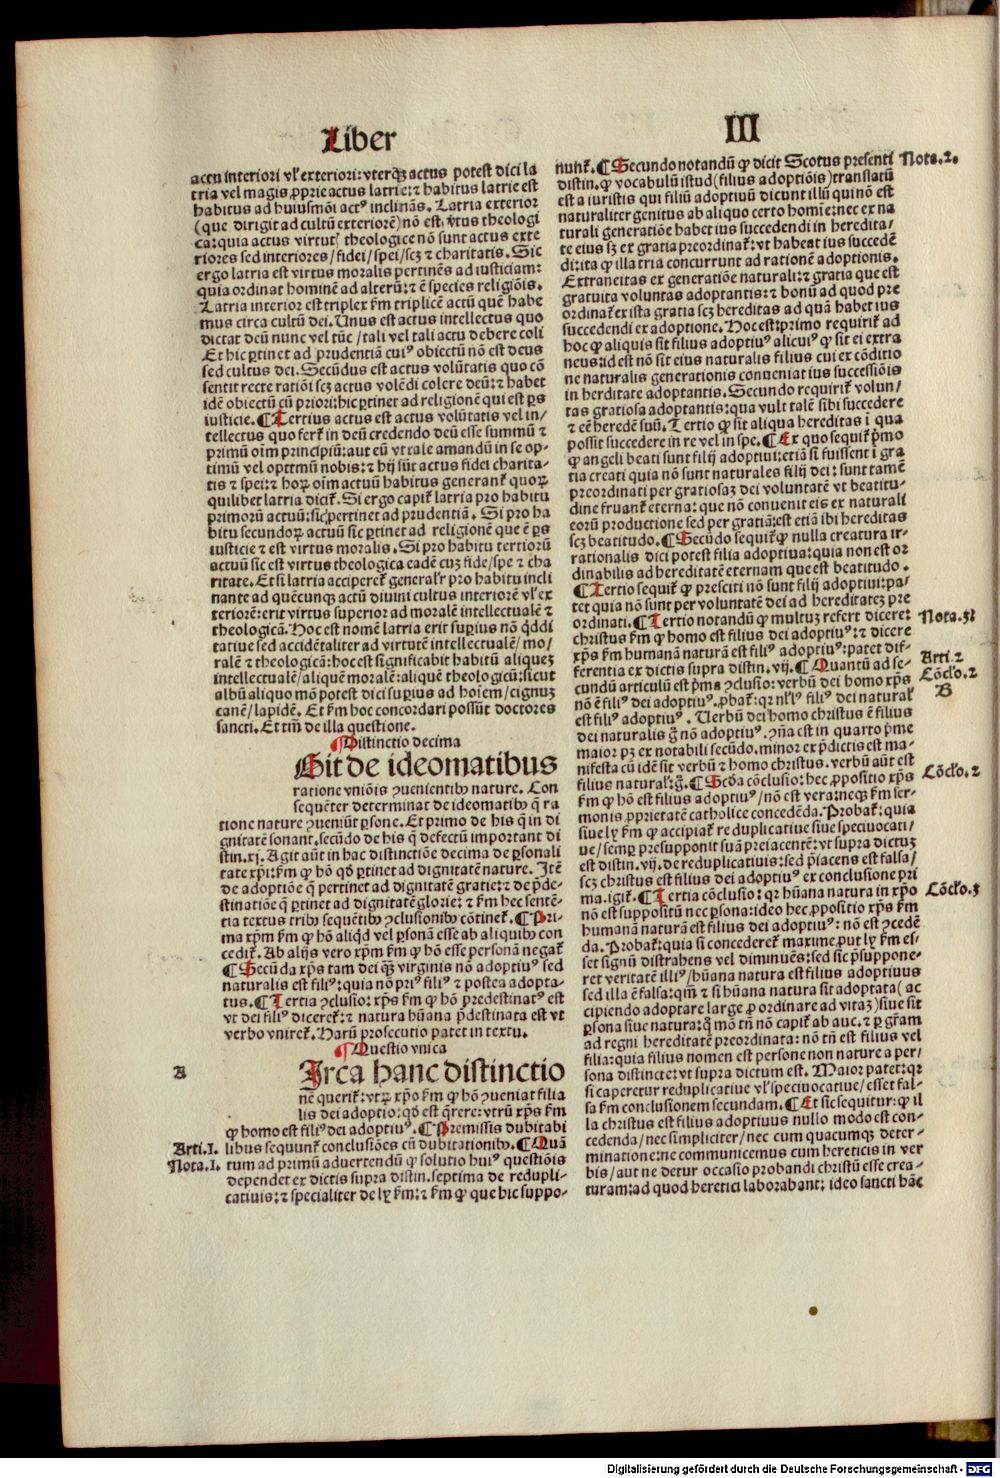 Liber III
actu interiori vl' exteriori: vterq3 actus potest dici la
tria vel magis ꝓprie actus latrie: ⁊ habitus latrie est
habitus ad huiusmōi actꝰ inclinās. Latria exterior
(que dirigit ad cultū exteriorē) nō est v̓tus theologi
ca: quia actus virtutꝭ theologice nō sunt actus exte
riores sed interiores / fidei / spei / scꝫ ⁊ charitatis. Sic
ergo latria est virtus moralis pertinēs ad iusticiam:
quia ordinat hominē ad alterū: ⁊ ē species religiōis.
Latria interior est triplex ẜm triplicē actū quē habe
mus circa cultū dei. Unus est actus intellectus quo
dictat deū nunc vel tūc / tali vel tali actu debere coli
Et hic ꝑtinet ad prudentiā cuiꝰ obiectū nō est deus
sed cultus dei. Secūdus est actus volūtatis quo cō
sentit recte ratiōi scꝫ actus volēdi colere deū: ⁊ habet
idē obiectū cū priori: hic ꝑtinet ad religionē qui est ꝑs
iusticie. ¶ Tertius actus est actus volūtatis vel in/
tellectus quo fertᷓ in deū credendo deū esse summū ⁊
primū oīm principiū: aut eū vt tale amandū in se op-
timū vel optimū nobis: ⁊ hij sūt actus fidei charita-
tis ⁊ spei: ⁊ hoꝝ oīm actuū habitus generantᷓ quoꝝ
quilibet latria dicitᷓ. Si ergo capitᷓ latria pro habitu
primorū actuū: sic ꝑtinet ad prudentiā. Si pro ha
bitu secundoꝝ actuū sic ꝑtinet ad religionē que ē ꝑs
iusticie ⁊ est virtus moralis. Si pro habitu tertiorū
actuū sic est virtus theologica eadē cuꝫ fide / spe ⁊ cha
ritate. Et si latria acciperetᷓ general'r pro habitu incli
nante ad quēcunqꝫ actū diuini cultus interiorē vl' ex
teriorē: erit virtus superior ad moralē intellectualē ⁊
theologicā. Hoc est nomē latria erit supius nō q̄ddi
tatiue sed accidētaliter ad virtutē intellectualē / mo/
ralē ⁊ theologicā: hoc est significabit habitū aliqueꝫ
intellectualē / aliquē moralē: aliquē theologicū: sicut
albū aliquo mō potest dici supius ad hoīem / cignuꝫ
canē / lapidē. Et ẜm hoc concordari possūt doctores
sancti. Et tm̄ de illa questione.
¶ Distinctio decima
Sit de ideomatibus
ratione vniōis ꝯuenientibꝰ nature. Con
sequēter determinat de ideomatibꝰ q̄ ra
tione nature ꝯueniūt ꝑsone. Et primo de his q̄ in di
gnitatē sonant. secūdo de his q̄ defectū important di
stin. xj. Agit aūt in hac distinctiōe decima de ꝑsonali
tate xp̄i: ẜm ꝙ hō qd̄ ꝑtinet ad dignitatē nature. Itē
de adoptiōe q̄ pertinet ad dignitatē gratie: ⁊ de p̄de-
stinatiōe q̄ ꝑtinet ad dignitatē glorie: ⁊ ẜm hec sentē-
tia textus tribꝰ sequētibꝰ ꝯclusionibꝰ cōtinetᷓ. ¶ Pri-
ma xp̄m ẜm ꝙ hō aliqd̄ vel ꝑsonā esse ab aliquibꝰ con
ceditᷓ. Ab alijs vero xp̄m ẜm ꝙ hō esse personā negatᷓ
¶ Secūda xp̄s tam dei qꝫ virginis nō adoptiuꝰ sed
naturalis est filiꝰ: quia nō priꝰ filiꝰ ⁊ postea adopta-
tus. ¶ Tertia ꝯclusio: xp̄s ẜm ꝙ hō predestinatꝰ est
vt dei filiꝰ diceretᷓ: ⁊ natura hūana p̄destinata est vt
verbo vniretᷓ. Harū prosecutio patet in textu.
¶ Questio vnica
A
Irca hanc distinctio
nē queritᷓ: vtꝝ xp̄o ẜm ꝙ hō ꝯueniat filia
lis dei adoptio: qd̄ est q̄rere: vtrū xp̄s ẜm
ꝙ homo est filiꝰ dei adoptiuꝰ. ¶ Premissis dubitabi
Arti. I. libus sequuntᷓ conclusiōes cū dubitationibꝰ. ¶ Quā
Nota. I. tum ad primū aduertendū ꝙ solutio huiꝰ questiōis
dependet ex dictis supra distin. septima de redupli-
catiuis: ⁊ specialiter de ly ẜm: ⁊ ẜm ꝙ que hic suppo-
nuntᷓ. ¶ Secundo notandū ꝙ dicit Scotus presenti Nota. 2.
distin. ꝙ vocabulū istud (filius adoptiōis) translatū
est a iuristis qui filiū adoptiuū dicunt illū qui nō est
naturaliter genitus ab aliquo certo homīe: nec ex na
turali generatiōe habet ius succedendi in heredita/
te eius sꝫ ex gratia preordinatᷓ: vt habeat ius succedē
di: ita ꝙ illa tria concurrunt ad rationē adoptionis.
Extraneitas ex generatiōe naturali: ⁊ gratia que est
gratuita voluntas adoptantis: ⁊ bonū ad quod pre
ordinatᷓ ex ista gratia scꝫ hereditas ad quā habet ius
succedendi ex adoptione. Hoc est: primo requiritᷓ ad
hoc ꝙ aliquis sit filius adoptiuꝰ alicuiꝰ ꝙ sit ei extra
neus: id est nō sit eius naturalis filius cui ex cōditio
ne naturalis generationis conueniat ius successiōis
in herditate adoptantis. Secundo requiritᷓ volun/
tas gratiosa adoptantis: qua vult talē sibi succedere
⁊ eē heredē suū. Tertio ꝙ sit aliqua hereditas ī qua
possit succedere in re vel in spe. ¶ Ex quo sequitᷓ p̄mo
ꝙ angeli beati sunt filij adoptiui: etiā si fuissent ī gra
tia creati quia nō sunt naturales filij dei: sunt tamē
preordinati per gratiosaꝫ dei voluntatē vt beatitu-
dine fruantᷓ eterna: que nō conuenit eis ex naturali
eorū productione sed per gratiā: est etiā ibi hereditas
scꝫ beatitudo. ¶ Secūdo sequitᷓ ꝙ nulla creatura ir-
rationalis dici potest filia adoptiua: quia non est or
dinabilis ad hereditatē eternam que est beatitudo.
¶ Tertio sequitᷓ ꝙ presciti nō sunt filij adoptiui: pa-
tet quia nō sunt per voluntatē dei ad hereditateꝫ pre
ordinati. ¶ Tertio notandū ꝙ multuꝫ refert dicere: Nota. 3.
christus ẜm ꝙ homo est filius dei adoptiuꝰ: ⁊ dicere
xp̄s ẜm humanā naturā est filiꝰ adoptiuꝰ: patet dif-
ferentia ex dictis supra distin. vij. ¶ Quantū ad se- Arti. 2
cundū articulū est p̄ma ꝯclusio: verbū dei homo xp̄s Cōclo. 2
nō ē filiꝰ dei adoptiuꝰ. ꝓbatᷓ: qr nl'lꝰ filiꝰ dei naturalᷓ B
est filiꝰ adoptiuꝰ. Verbū dei homo christus ē filius
dei naturalis g̊ nō adoptiuꝰ. ꝯn̄a est in quarto p̄me
maior pꝫ ex notabili secūdo. minor ex p̄dictis est ma-
nifesta cū idē sit verbū ⁊ homo christus. verbū aūt est
filius natural': g̊. ¶ Scd̄a cōclusio: hec ꝓpositio xp̄s Cōclo. 2
ẜm ꝙ hō est filius adoptiuꝰ / nō est vera: neqꝫ ẜm ser-
monis ꝓprietatē catholice concedēda. Probatᷓ: quia
siue ly ẜm ꝙ accipiatᷓ reduplicatiue siue speciuocati/
ue / semꝑ presupponit suā preiacentē: vt supra dictuꝫ
est distin. vij. de reduplicatiuis: sed p̄iacens est falsa /
scꝫ christus est filius dei adoptiuꝰ ex conclusione pri
ma. igitᷓ. ¶ Tertia cōclusio: qr hūana natura in xp̄o Cōclo. 3
nō est suppositū nec ꝑsona: ideo hec ꝓpositio xp̄s ẜm
humanā naturā est filius dei adoptiuꝰ: nō est ꝯcedē
da. Probatᷓ: quia si concederetᷓ maxime, put ly ẜm es/
set signū distrahens vel diminuēs: sed sic p̄suppone-
ret veritatē illiꝰ / hūana natura est filius adoptiuus
sed illa ē falsa: qm̄ ⁊ si hūana natura sit adoptata (ac
cipiendo adoptare large ꝓ ordinare ad vitaꝫ) siue sit
ꝑsona siue natura: q̊ mō tn̄ nō capitᷓ ab auc. ⁊ ꝑ gr̄am
ad regni hereditatē preordinata: nō tn̄ est filius vel
filia: quia filius nomen est persone non nature a per/
sona distincte: vt supra dictum est. Maior patet: qr
si caperetur reduplicatiue vl' speciuocatiue / esset fal-
sa ẜm conclusionem secundam. ¶ Et sic sequitur: ꝙ il
la christus est filius adoptiuus nullo modo est con-
cedenda / nec simpliciter / nec cum quacumqꝫ deter-
minatione: ne communicemus cum hereticis in ver
bis / aut ne detur occasio probandi christū esse crea-
turam: ad quod heretici laborabant: ideo sancti hāc
Digitalisierung gefördert durch die Deutsche Forschungsgemeinschaft - DFG